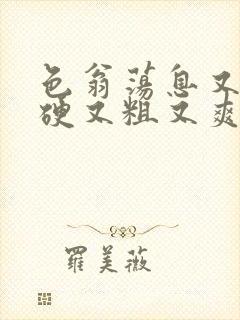 色翁荡息又
硬又粗又爽
羅美薇